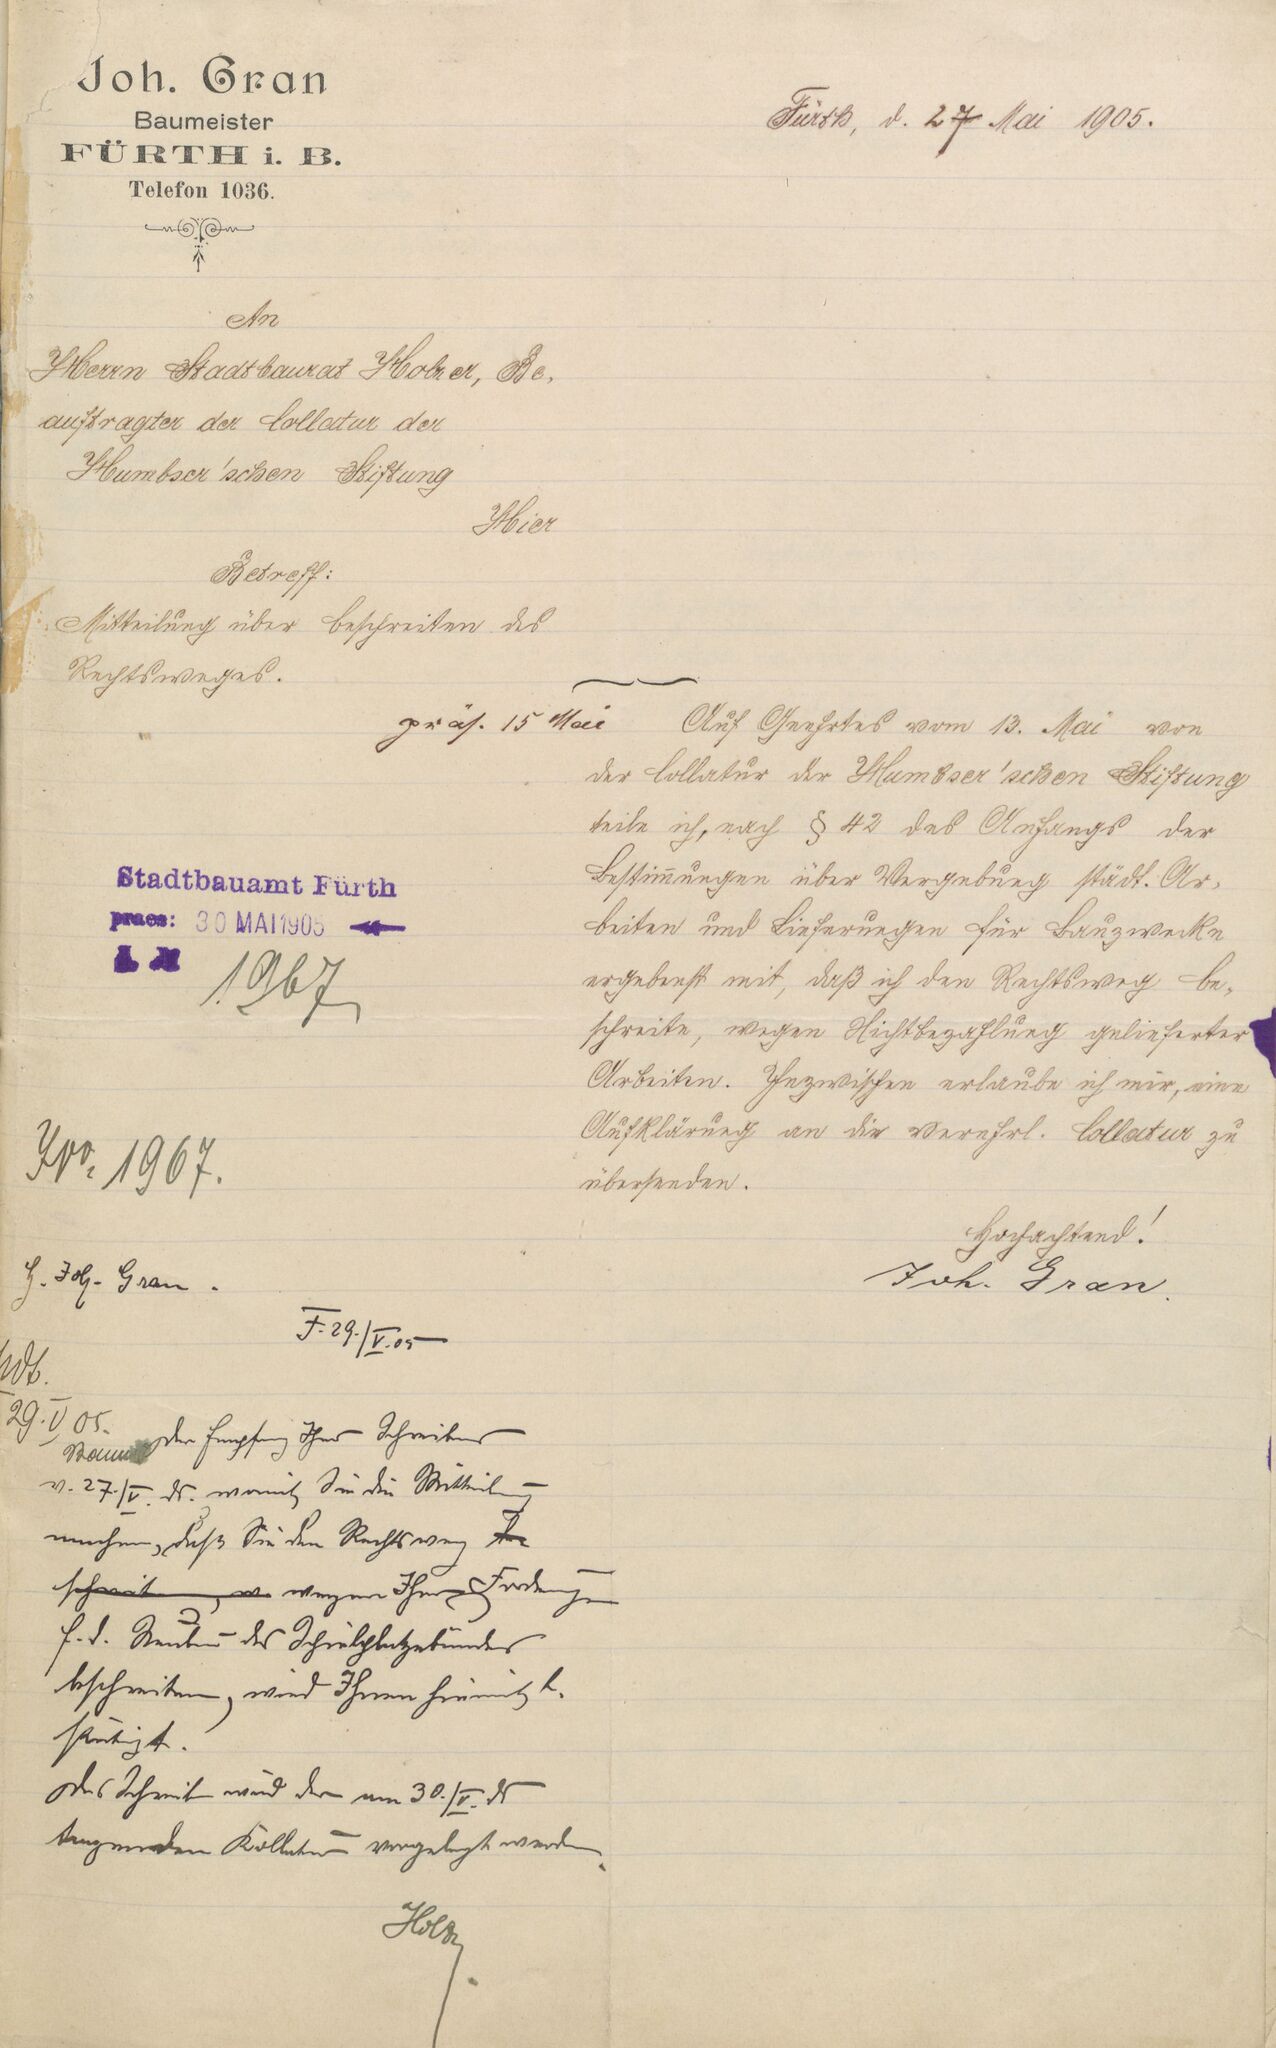 Joh. Gran
Baumeister
FÜRTH i. B.
Telefon 1036.
Fürth, d. 27 Mai 1905.
An
Herrn Stadtbaurat Holzer, Be-
auftragter der Collatur der
Humbser'schen Stiftung
Hier
Betreff:
Mitteilung über beschreiten des
Rechtsweges.
präs. 15 Mai
Auf Geehrtes vom 13. Mai von
der Collatur der Humbser'schen Stiftung
teile ich, nach § 42 des Anhangs der
Bestim̅ungen über Vergebung städt. Ar-
beiten und Lieferungen für Bauzwecke
ergebenst mit, daß ich den Rechtsweg be-
schreite, wegen Nichtbezahlung gelieferter
Arbeiten. Inzwischen erlaube ich mir, eine
Aufklärung an die verehrl. Collatur zu
übersenden.
Hochachtend!
Joh. Gran.
Stadtbauamt Fürth
praes: 30 MAI 1905
1967
No. 1967.
H. Joh. Gran.
F. 29./V. 05
29. V 05.
Der Empfang Ihres Schreibens
v. 27./V. ds. womit Sie die Mitteilung
machen, daß Sie den Rechtsweg be
schreiten, w. wegen Ihrer Forderungen
f. d. Neubau des
beschreiten, wird Ihnen hiemit be-
stätigt.
Das Schreiben wird der am 30./V. ds
tagenden Kollatur vorgelegt werden.
Holzer